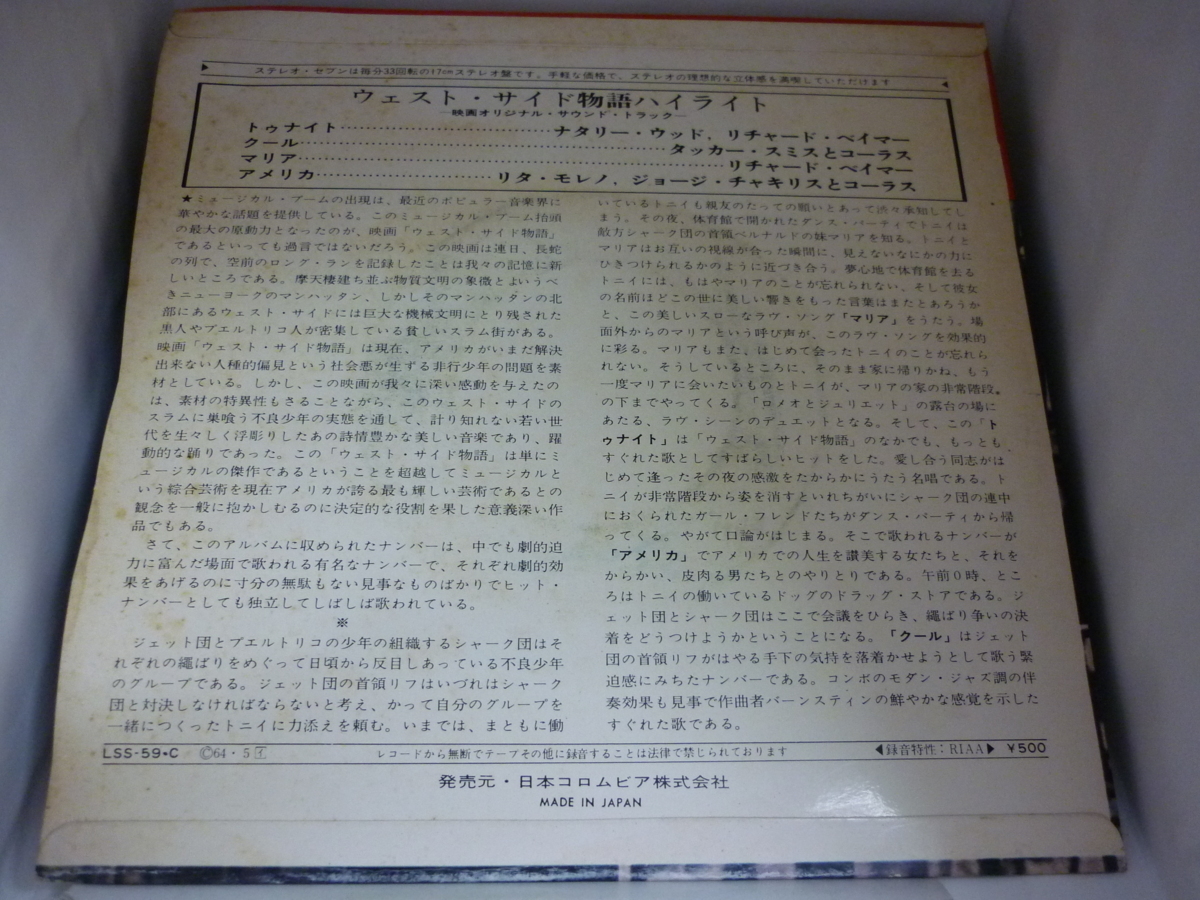 ステレオ・セブンは毎分33回転の17cmステレオ盤です。手軽な価格で、ステレオの理想的な立体感を満喫していただけます
ウェスト・サイド物語ハイライト
—映画オリジナル・サウンド・トラック—
トゥナイト……………………………ナタリー・ウッド, リチャード・ベイマー
クール……………………………………………タッカー・スミスとコーラス
マリア…………………………………………………リチャード・ベイマー
アメリカ……………………リタ・モレノ, ジョージ・チャキリスとコーラス
★ミュージカル・ブームの出現は、最近のポピュラー音楽界に
華やかな話題を提供している。このミュージカル・ブーム抬頭
の最大の原動力となったのが、映画「ウェスト・サイド物語」
であるといっても過言ではないだろう。この映画は連日、長蛇
の列で、空前のロング・ランを記録したことは我々の記憶に新
しいところである。摩天棲建ち並ぶ物質文明の象徴とよいうべ
きニューヨークのマンハッタン、しかしそのマンハッタンの北
部にあるウェスト・サイドには巨大な機械文明にとり残された
黒人やプエルトリコ人が密集している貧しいスラム街がある。
映画「ウェスト・サイド物語」は現在、アメリカがいまだ解決
出来ない人種的偏見という社会悪が生ずる非行少年の問題を素
材としている。しかし、この映画が我々に深い感動を与えたの
は、素材の特異性もさることながら、このウェスト・サイドの
スラムに巣喰う不良少年の実態を通して、計り知れない若い世
代を生々しく浮彫りしたあの詩情豊かな美しい音楽であり、躍
動的な踊りであった。この「ウェスト・サイド物語」は単にミ
ュージカルの傑作であるということを超越してミュージカルと
いう綜合芸術を現在アメリカが誇る最も輝しい芸術であるとの
観念を一般に抱かしむるのに決定的な役割を果した意義深い作
品でもある。
さて、このアルバムに収められたナンバーは、中でも劇的迫
力に富んだ場面で歌われる有名なナンバーで、それぞれ劇的効
果をあげるのに寸分の無駄もない見事なものばかりでヒット・
ナンバーとしても独立してしばしば歌われている。
※
ジェット団とプエルトリコの少年の組織するシャーク団はそ
れぞれの縄ばりをめぐって日頃から反目しあっている不良少年
のグループである。ジェット団の首領リフはいづれはシャーク
団と対決しなければならないと考え、かって自分のグループを
一緒につくったトニイに力添えを頼む。いまでは、まともに働
いているトニイも親友のたっての願いとあって渋々承知してし
まう。その夜、体育館で開かれたダンス・パーティでトニイは
敵方シャーク団の首領ベルナルドの妹マリアを知る。トニイと
マリアはお互いの視線が合った瞬間に、見えないなにかの力に
ひきつけられるかのように近づき合う。夢心地で体育館を去る
トニイには、もはやマリアのことが忘れられない、そして彼女
の名前ほどこの世に美しい響きをもった言葉はまたとあろうか
と、この美しいスローなラヴ・ソング「マリア」をうたう。場
面外からのマリアという呼び声が、このラヴ・ソングを効果的
に彩る。マリアもまた、はじめて会ったトニイのことが忘れら
れない。そうしているところに、そのまま家に帰りかね、もう
一度マリアに会いたいものとトニイが、マリアの家の非常階段。
の下までやってくる。「ロメオとジュリエット」の露台の場に
あたる、ラヴ・シーンのデュエットとなる。そして、この「ト
ゥナイト」は「ウェスト・サイド物語」のなかでも、もっとも
すぐれた歌としてすばらしいヒットをした。愛し合う同志がは
じめて逢ったその夜の感激をたからかにうたう名唱である。ト
ニイが非常階段から姿を消すといれちがいにシャーク団の連中
におくられたガール・フレンドたちがダンス・パーティから帰
ってくる。やがて口論がはじまる。そこで歌われるナンバーが
「アメリカ」でアメリカでの人生を讃美する女たちと、それを
からかい、皮肉る男たちとのやりとりである。午前０時、とこ
ろはトニイの働いているドッグのドラッグ・ストアである。ジ
ェット団とシャーク団はここで会議をひらき、縄ばり争いの決
着をどうつけようかということになる。「クール」はジェット
団の首領リフがはやる手下の気持を落着かせようとして歌う緊
迫感にみちたナンバーである。コンボのモダン・ジャズ調の伴
奏効果も見事で作曲者バーンスティンの鮮やかな感覚を示した
すぐれた歌である。
LSS-59・C ©64・5 イ レコードから無断でテープその他に録音することは法律で禁じられております ◀録音特性：RIAA▶ ¥500
発売元・日本コロムビア株式会社
MADE IN JAPAN